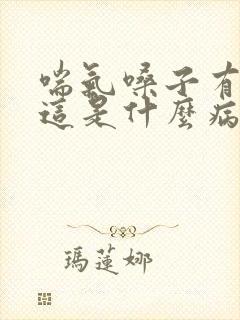 喘氣嗓子有
這是什麼病
瑪蓮娜